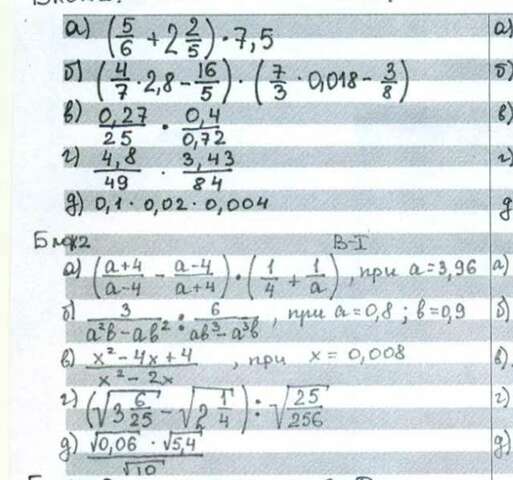 а) (5/6 + 2 2/5) · 7,5
б) (4/7 · 2,8 - 16/5) · (7/3 · 0,018 - 3/8)
в) 0,27/25 · 0,4/0,72
г) 4,8/49 · 3,43/84
д) 0,1 · 0,02 · 0,004
Блок2 В-I
а) ((a+4)/(a-4) - (a-4)/(a+4)) · (1/4 + 1/a), при a=3,96
б) 3/(a²b - ab²) : 6/(ab³ - a³b), при a=0,8; b=0,9
в) (x² - 4x + 4)/(x² - 2x), при x = 0,008
г) (√(3 6/25) - √(2 1/4)) : √(25/256)
д) (√0,06 · √5,4)/√10